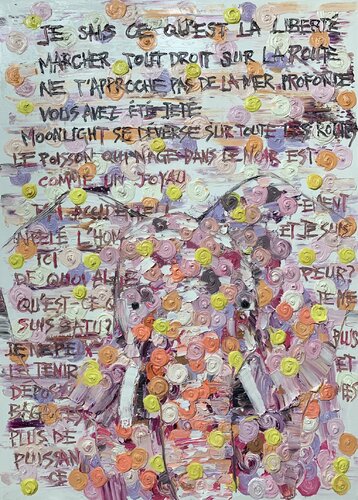 JE SAIS CE QU'EST LA LIBERTÉ
MARCHER TOUT DROIT SUR LA ROUTE
NE T'APPROCHE PAS DE LA MER PROFONDE
VOUS AVEZ ÉTÉ JETÉ
MOONLIGHT SE DEVERSE SUR TOUTE LES ROUTES
LE POISSON QUI NAGE DANS LE NOMB EST
COMME UN JOYAU
EMENT
APPELÉ L'HOM
ET JE SUIS
ICI
DE QUOI AI-JE
PEUR?
QU'EST-CE Q
JE ME
SUIS BATTU?
PLUS
LE TENIR
ET
DÉPOSE
PLUS DE
PUISSAN
CE